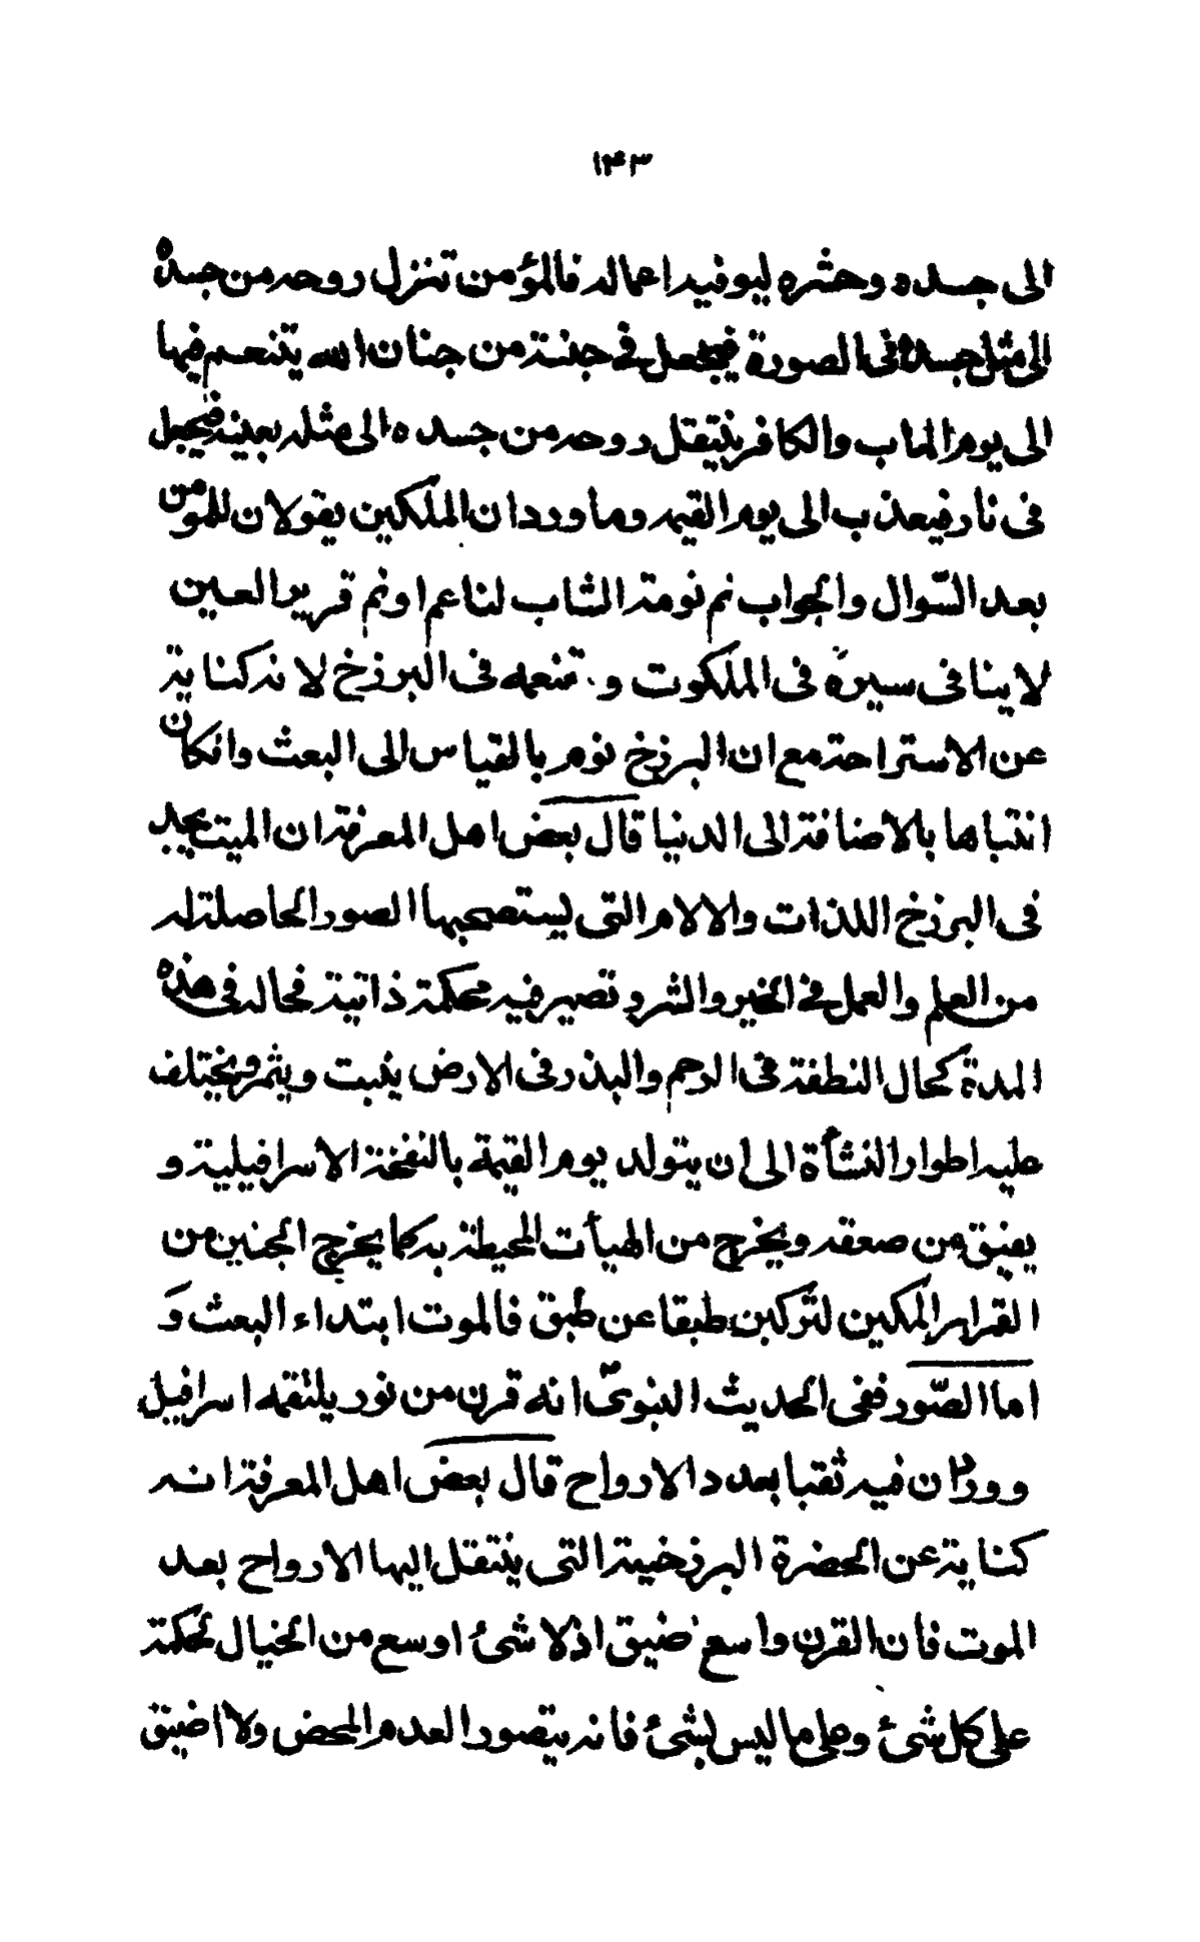 ۱۴۳
الى جسده وحشره ليوفيه اعماله فالمؤمن تنزل روحه من جسده
الى مثل جسده فى الصورة فيجعل فى جنة من جنان الله يتنعم فيها
الى يوم الماب والكافر ينتقل روحه من جسده الى مثله بعينه فيجعل
فى نار فيعذب الى يوم القيمه وما ورد ان الملكين يقولان للمؤمن
بعد السّوال والجواب نم نومة الشاب الناعم او نم قرير العين
لا ينافى سيره فى الملكوت و تنعمه فى البرزخ لانه كناية
عن الاستراحة مع ان البرزخ نوم بالقياس الى البعث وانكان
انتباها بالاضافة الى الدنيا قال بعض اهل المعرفة ان الميت يجد
فى البرزخ اللذات والالام التى يستصحبها الصور الحاصلة له
من العلم والعمل فى الخير والشر و تصير فيه محكمة ذاتية فحاله فى هذه
المدة كحال النطفة فى الرحم والبذر فى الارض ينبت ويثمر ويختلف
عليه اطوار النشأة الى ان يتولد يوم القيمة بالنفخة الاسرافيلية و
يفيق من صعقه ويخرج من الهيأت المحيطة به كما يخرج الجنين من
القرار المكين لتركبن طبقا عن طبق فالموت ابتداء البعث وَ
اما الصّور ففى الحديث النبوىّ انه قرن من نور يلتقمه اسرافيل
وورد ان فيه ثقبا بعدد الارواح قال بعض اهل المعرفة انه
كناية عن الحضرة البرزخية التى ينتقل اليها الارواح بعد
الموت فان القرن واسع ضيق اذ لا شئ اوسع من الخيال لحكمته
على كل شئ وعلى ما ليس بشئ فانه يتصور العدم المحض ولا اضيق